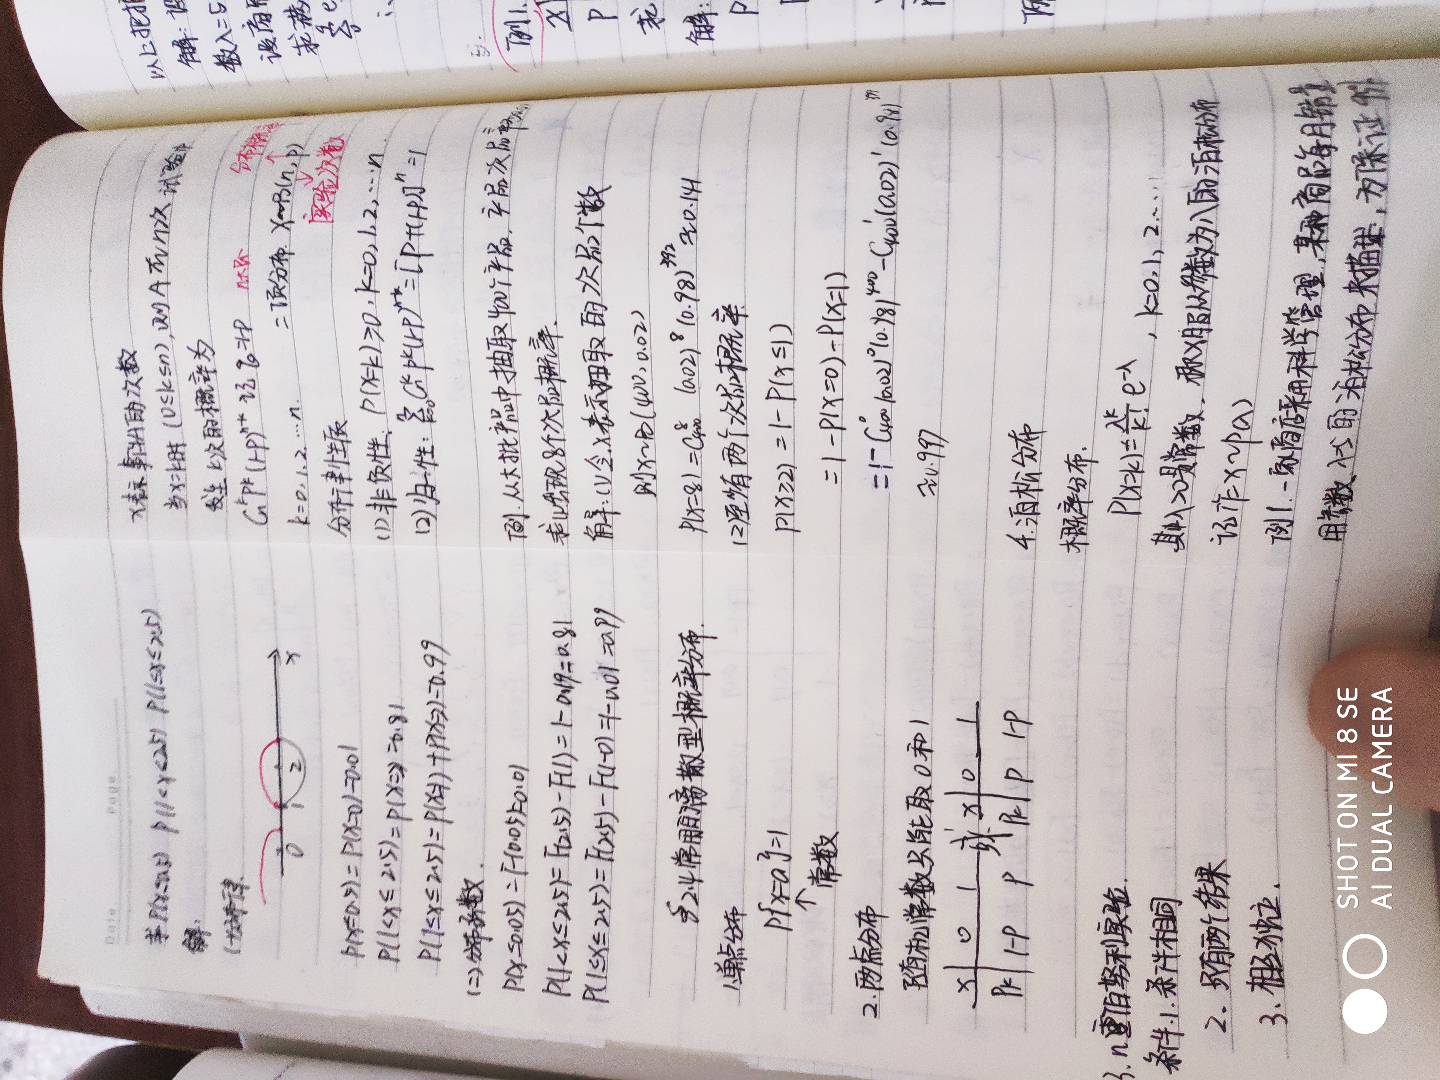 Date Page
求P(x≤0.5) P(1<x≤2.5) P(1≤x≤2.5)
解:
(一)分布律
0 1 2 x
P(x≤0.5)=P(x=0)=0.01
P(1<x≤2.5)=P(x=2)=0.81
P(1≤x≤2.5)=P(x=1)+P(x=2)=0.99
(二)分布函数.
P(x≤0.05)=F(0.05)=0.01
P(1<x≤2.5)=F(2.5)-F(1)=1-0.19=0.81
P(1≤x≤2.5)=F(2.5)-F(1-0)=1-0.01=0.99
§2.4常用离散型概率分布.
1.单点分布
P{x=a}=1
↑常数
2.两点分布
随机常数只能取0和1
x 0 1 或 x 0 1
Pk 1-P P Pk P 1-P
3.n重伯努利实验.
条件.1.条件相同
2.只有两个结果
3.相互独立.
x表示事件A的次数
当x=k时(0≤k≤n),则A在n次试验中
发生k次的概率为
Cₙᵏpᵏ(1-p)ⁿ⁻ᵏ 记q=1-p
k=0,1,2…n. 二项分布. X~B(n,p)
实验次数
分布律性质
(1)非负性: P(x=k)≥0,k=0,1,2,…n.
(2)归一性: Σ Cₙᵏpᵏ(1-p)ⁿ⁻ᵏ=[p+(1-p)]ⁿ=1
例.从大批产品中抽取400个产品,产品次品率为
求(1)出现8个次品概率.
解:(1)令x表示抽取的次品个数
则x~B(400,0.02)
P(x=8)=C₄₀₀⁸ (0.02)⁸(0.98)³⁹²≈0.141
(2)至少有两个次品概率
P(x≥2)=1-P(x≤1)
=1-P(x=0)-P(x=1)
=1-C₄₀₀⁰(0.02)⁰(0.98)⁴⁰⁰-C₄₀₀¹(0.02)¹(0.98)³⁹⁹
≈0.997
4.泊松分布
概率分布.
P(x=k)=λᵏ/k! e^-λ, k=0,1,2.…
其中λ>0是常数,称x服从参数为λ的泊松分布
记作x~p(λ)
例1.一家商店采用科学管理,某种商品每月销量
用参数λ=5的泊松分布来描述,为保证95%
以上把握
解:设
数λ=5
设商店
求满
例1.
x
P
求
解:
P
SHOT ON MI 8 SE
AI DUAL CAMERA